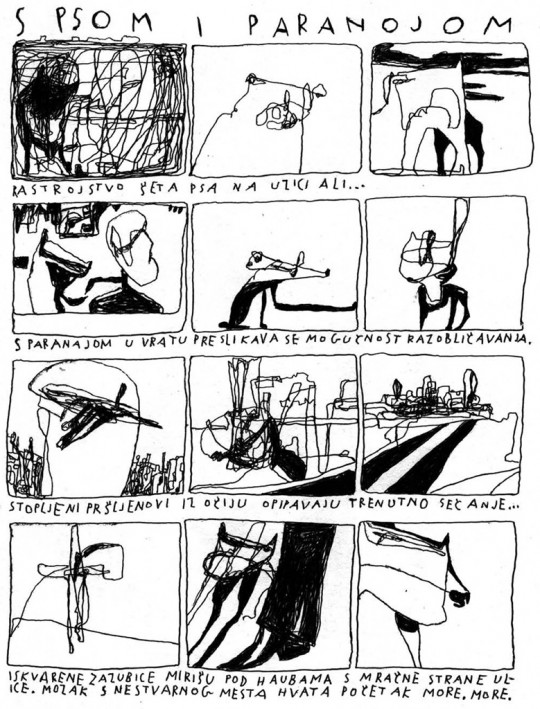 S PSOM I PARANOJOM
RASTROJSTVO ŠETA PSA NA UZICI ALI...
S PARANAJOM U VRATU PRESLIKAVA SE MOGUČNOST RAZOBLIČAVANJA.
STOPLJENI PRŠLJENOVI IZ OČIJU OPIPAVAJU TRENUTNO SEČANJE...
ISKVARENE ZAZUBICE MIRIŠU POD HAUBAMA S MRAČNE STRANE UL-
ICE. MOZAK S NESTVARNOG MESTA HVATA POČETAK MORE. MORE.